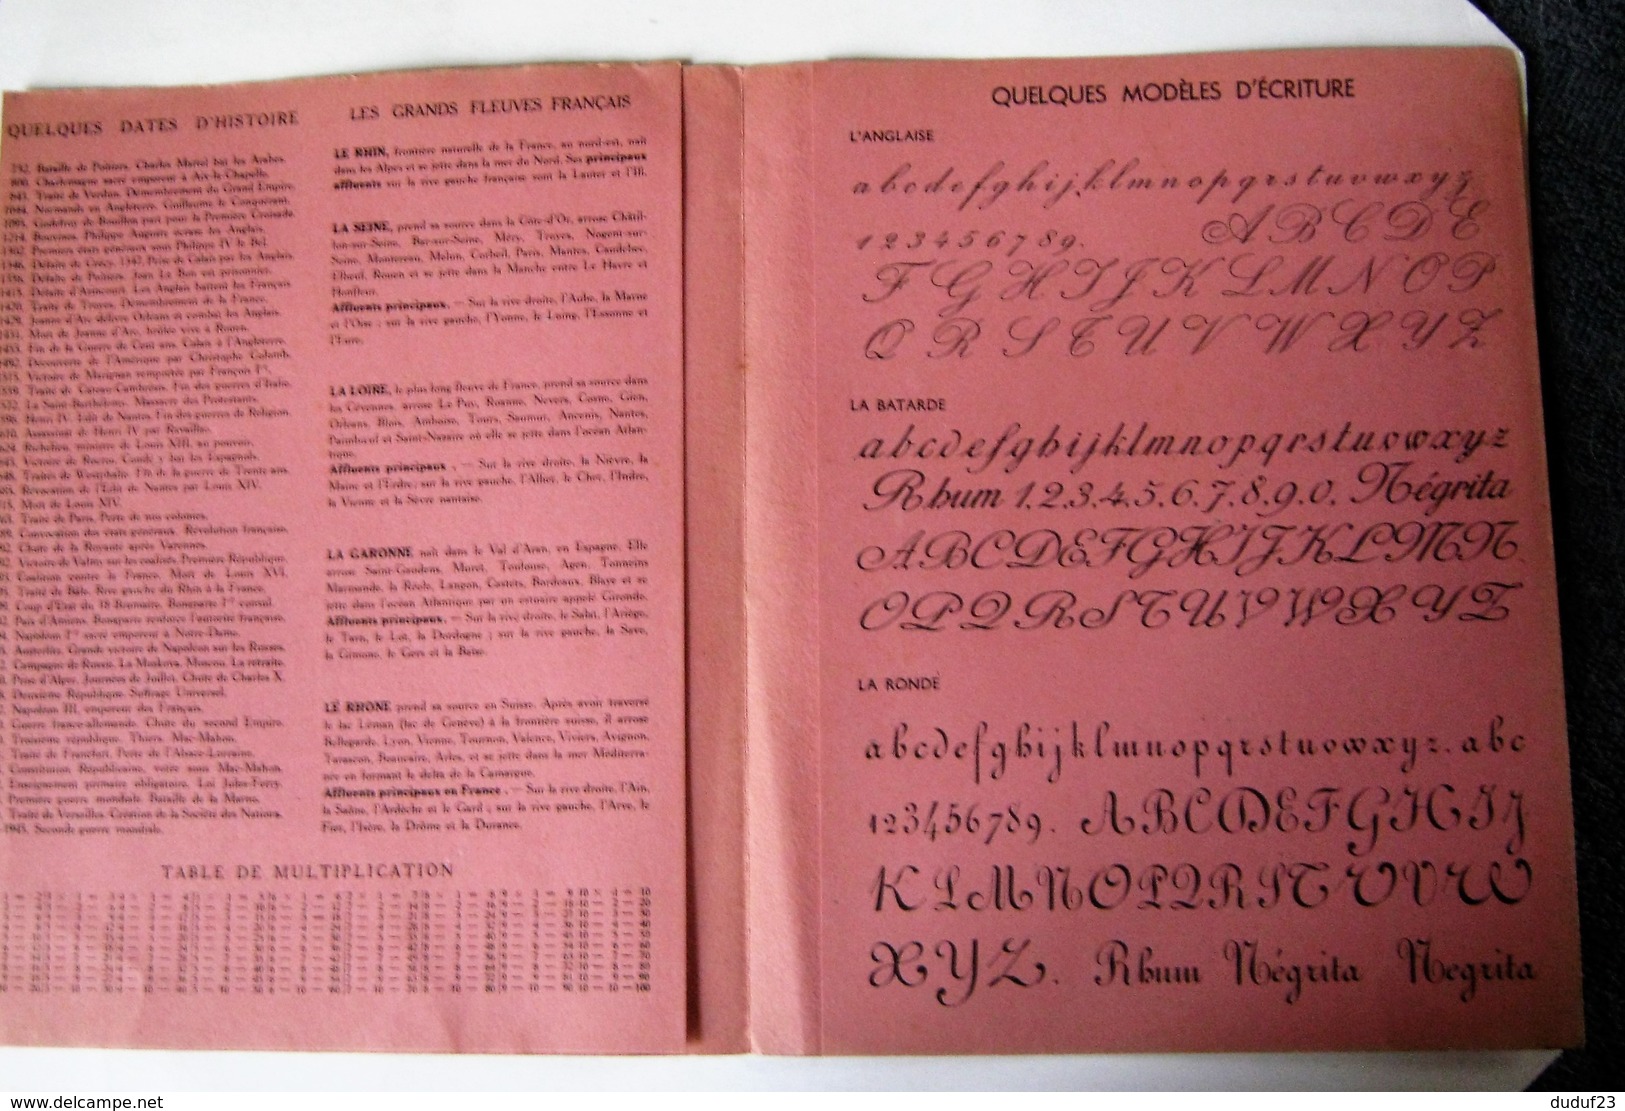 QUELQUES DATES D'HISTOIRE
732. Bataille de Poitiers. Charles Martel bat les Arabes.
800. Charlemagne sacré empereur à Aix-la-Chapelle.
843. Traité de Verdun. Démembrement du Grand Empire.
Normands en Angleterre. Guillaume le Conquérant.
Godefroy de Bouillon part pour la Première Croisade.
1214. Bouvines. Philippe Auguste écrase les Anglais.
1302. Premiers états généraux sous Philippe IV le Bel.
1346. Défaite de Crécy. 1347, Prise de Calais par les Anglais.
1356. Défaite de Poitiers. Jean Le Bon est prisonnier.
1415. Défaite d'Azincourt. Les Anglais battent les Français
1420. Traité de Troyes. Démembrement de la France.
1429. Jeanne d'Arc délivre Orléans et combat les Anglais.
1431. Mort de Jeanne d'Arc, brûlée vive à Rouen.
1453. Fin de la Guerre de Cent ans. Calais à l'Angleterre.
1492. Découverte de l'Amérique par Christophe Colomb.
1515. Victoire de Marignan remportée par François Iᵉʳ.
1559. Traité de Cateau-Cambrésis. Fin des guerres d'Italie.
1572. La Saint-Barthélemy. Massacre des Protestants.
Henri IV. Edit de Nantes. Fin des guerres de Religion.
Assassinat de Henri IV par Ravaillac.
Richelieu, ministre de Louis XIII, au pouvoir.
Victoire de Rocroi. Condé y bat les Espagnols.
Traités de Westphalie. Fin de la guerre de Trente ans.
Révocation de l'Edit de Nantes par Louis XIV.
Mort de Louis XIV.
Traité de Paris. Perte de nos colonies.
Convocation des états généraux. Révolution française.
Chute de la Royauté après Varennes.
Victoire de Valmy sur les coalisés. Première République.
Coalition contre la France. Mort de Louis XVI.
Traité de Bâle. Rive gauche du Rhin à la France.
Coup d'Etat du 18 Brumaire. Bonaparte 1ᵉʳ consul.
Paix d'Amiens. Bonaparte renforce l'autorité française.
Napoléon Iᵉʳ sacré empereur à Notre-Dame.
Austerlitz. Grande victoire de Napoléon sur les Russes.
Campagne de Russie. La Moskova. Moscou. La retraite.
Prise d'Alger. Journées de Juillet. Chute de Charles X.
Deuxième République. Suffrage Universel.
Napoléon III, empereur des Français.
Guerre franco-allemande. Chute du second Empire.
Troisième république. Thiers. Mac-Mahon.
Traité de Francfort. Perte de l'Alsace-Lorraine.
Constitution Républicaine, votée sous Mac-Mahon.
Enseignement primaire obligatoire. Loi Jules-Ferry.
Première guerre mondiale. Bataille de la Marne.
Traité de Versailles. Création de la Société des Nations.
-1945. Seconde guerre mondiale.
LES GRANDS FLEUVES FRANÇAIS
LE RHIN, frontière naturelle de la France, au nord-est, naît
dans les Alpes et se jette dans la mer du Nord. Ses principaux
affluents sur la rive gauche française sont la Lauter et l'Ill.
LA SEINE, prend sa source dans la Côte-d'Or, arrose Châtil-
lon-sur-Seine, Bar-sur-Seine, Méry, Troyes, Nogent-sur-
Seine, Montereau, Melun, Corbeil, Paris, Mantes, Caudebec,
Elbeuf, Rouen et se jette dans la Manche entre Le Havre et
Honfleur.
Affluents principaux. — Sur la rive droite, l'Aube, la Marne
et l'Oise ; sur la rive gauche, l'Yonne, le Loing, l'Essonne et
l'Eure.
LA LOIRE, le plus long fleuve de France, prend sa source dans
les Cévennes, arrose Le Puy, Roanne, Nevers, Cosne, Gien,
Orléans, Blois, Amboise, Tours, Saumur, Ancenis, Nantes,
Paimbœuf et Saint-Nazaire où elle se jette dans l'océan Atlan-
tique.
Affluents principaux. — Sur la rive droite, la Nièvre, la
Maine et l'Erdre; sur la rive gauche, l'Allier, le Cher, l'Indre,
la Vienne et la Sèvre nantaise.
LA GARONNE naît dans le Val d'Aran, en Espagne. Elle
arrose Saint-Gaudens, Muret, Toulouse, Agen, Tonneins
Marmande, la Réole, Langon, Castets, Bordeaux, Blaye et se
jette dans l'océan Atlantique par un estuaire appelé Gironde.
Affluents principaux. — Sur la rive droite, le Salat, l'Ariège,
le Tarn, le Lot, la Dordogne ; sur la rive gauche, la Save,
la Gimone, le Gers et la Baïse.
LE RHONE prend sa source en Suisse. Après avoir traversé
le lac Léman (lac de Genève) à la frontière suisse, il arrose
Bellegarde, Lyon, Vienne, Tournon, Valence, Viviers, Avignon,
Tarascon, Beaucaire, Arles, et se jette dans la mer Méditerra-
née en formant le delta de la Camargue.
Affluents principaux en France. — Sur la rive droite, l'Ain,
la Saône, l'Ardèche et le Gard ; sur la rive gauche, l'Arve, le
Fier, l'Isère, la Drôme et la Durance.
TABLE DE MULTIPLICATION
QUELQUES MODÈLES D'ÉCRITURE
L'ANGLAISE
a b c d e f g h i j k l m n o p q r s t u v w x y z
1 2 3 4 5 6 7 8 9. A B C D E
F G H I J K L M N O P
Q R S T U V W X Y Z
LA BATARDE
a b c d e f g h i j k l m n o p q r s t u v w x y z
Rhum 1.2.3.4.5.6.7.8.9.0. Négrita
A B C D E F G H I J K L M N
O P Q R S T U V W X Y Z
LA RONDE
a b c d e f g h i j k l m n o p q r s t u v w x y z. a b c
1 2 3 4 5 6 7 8 9. A B C D E F G H I J
K L M N O P Q R S T U V W
X Y Z. Rhum Négrita Negrita
www.delcampe.net
duduf23